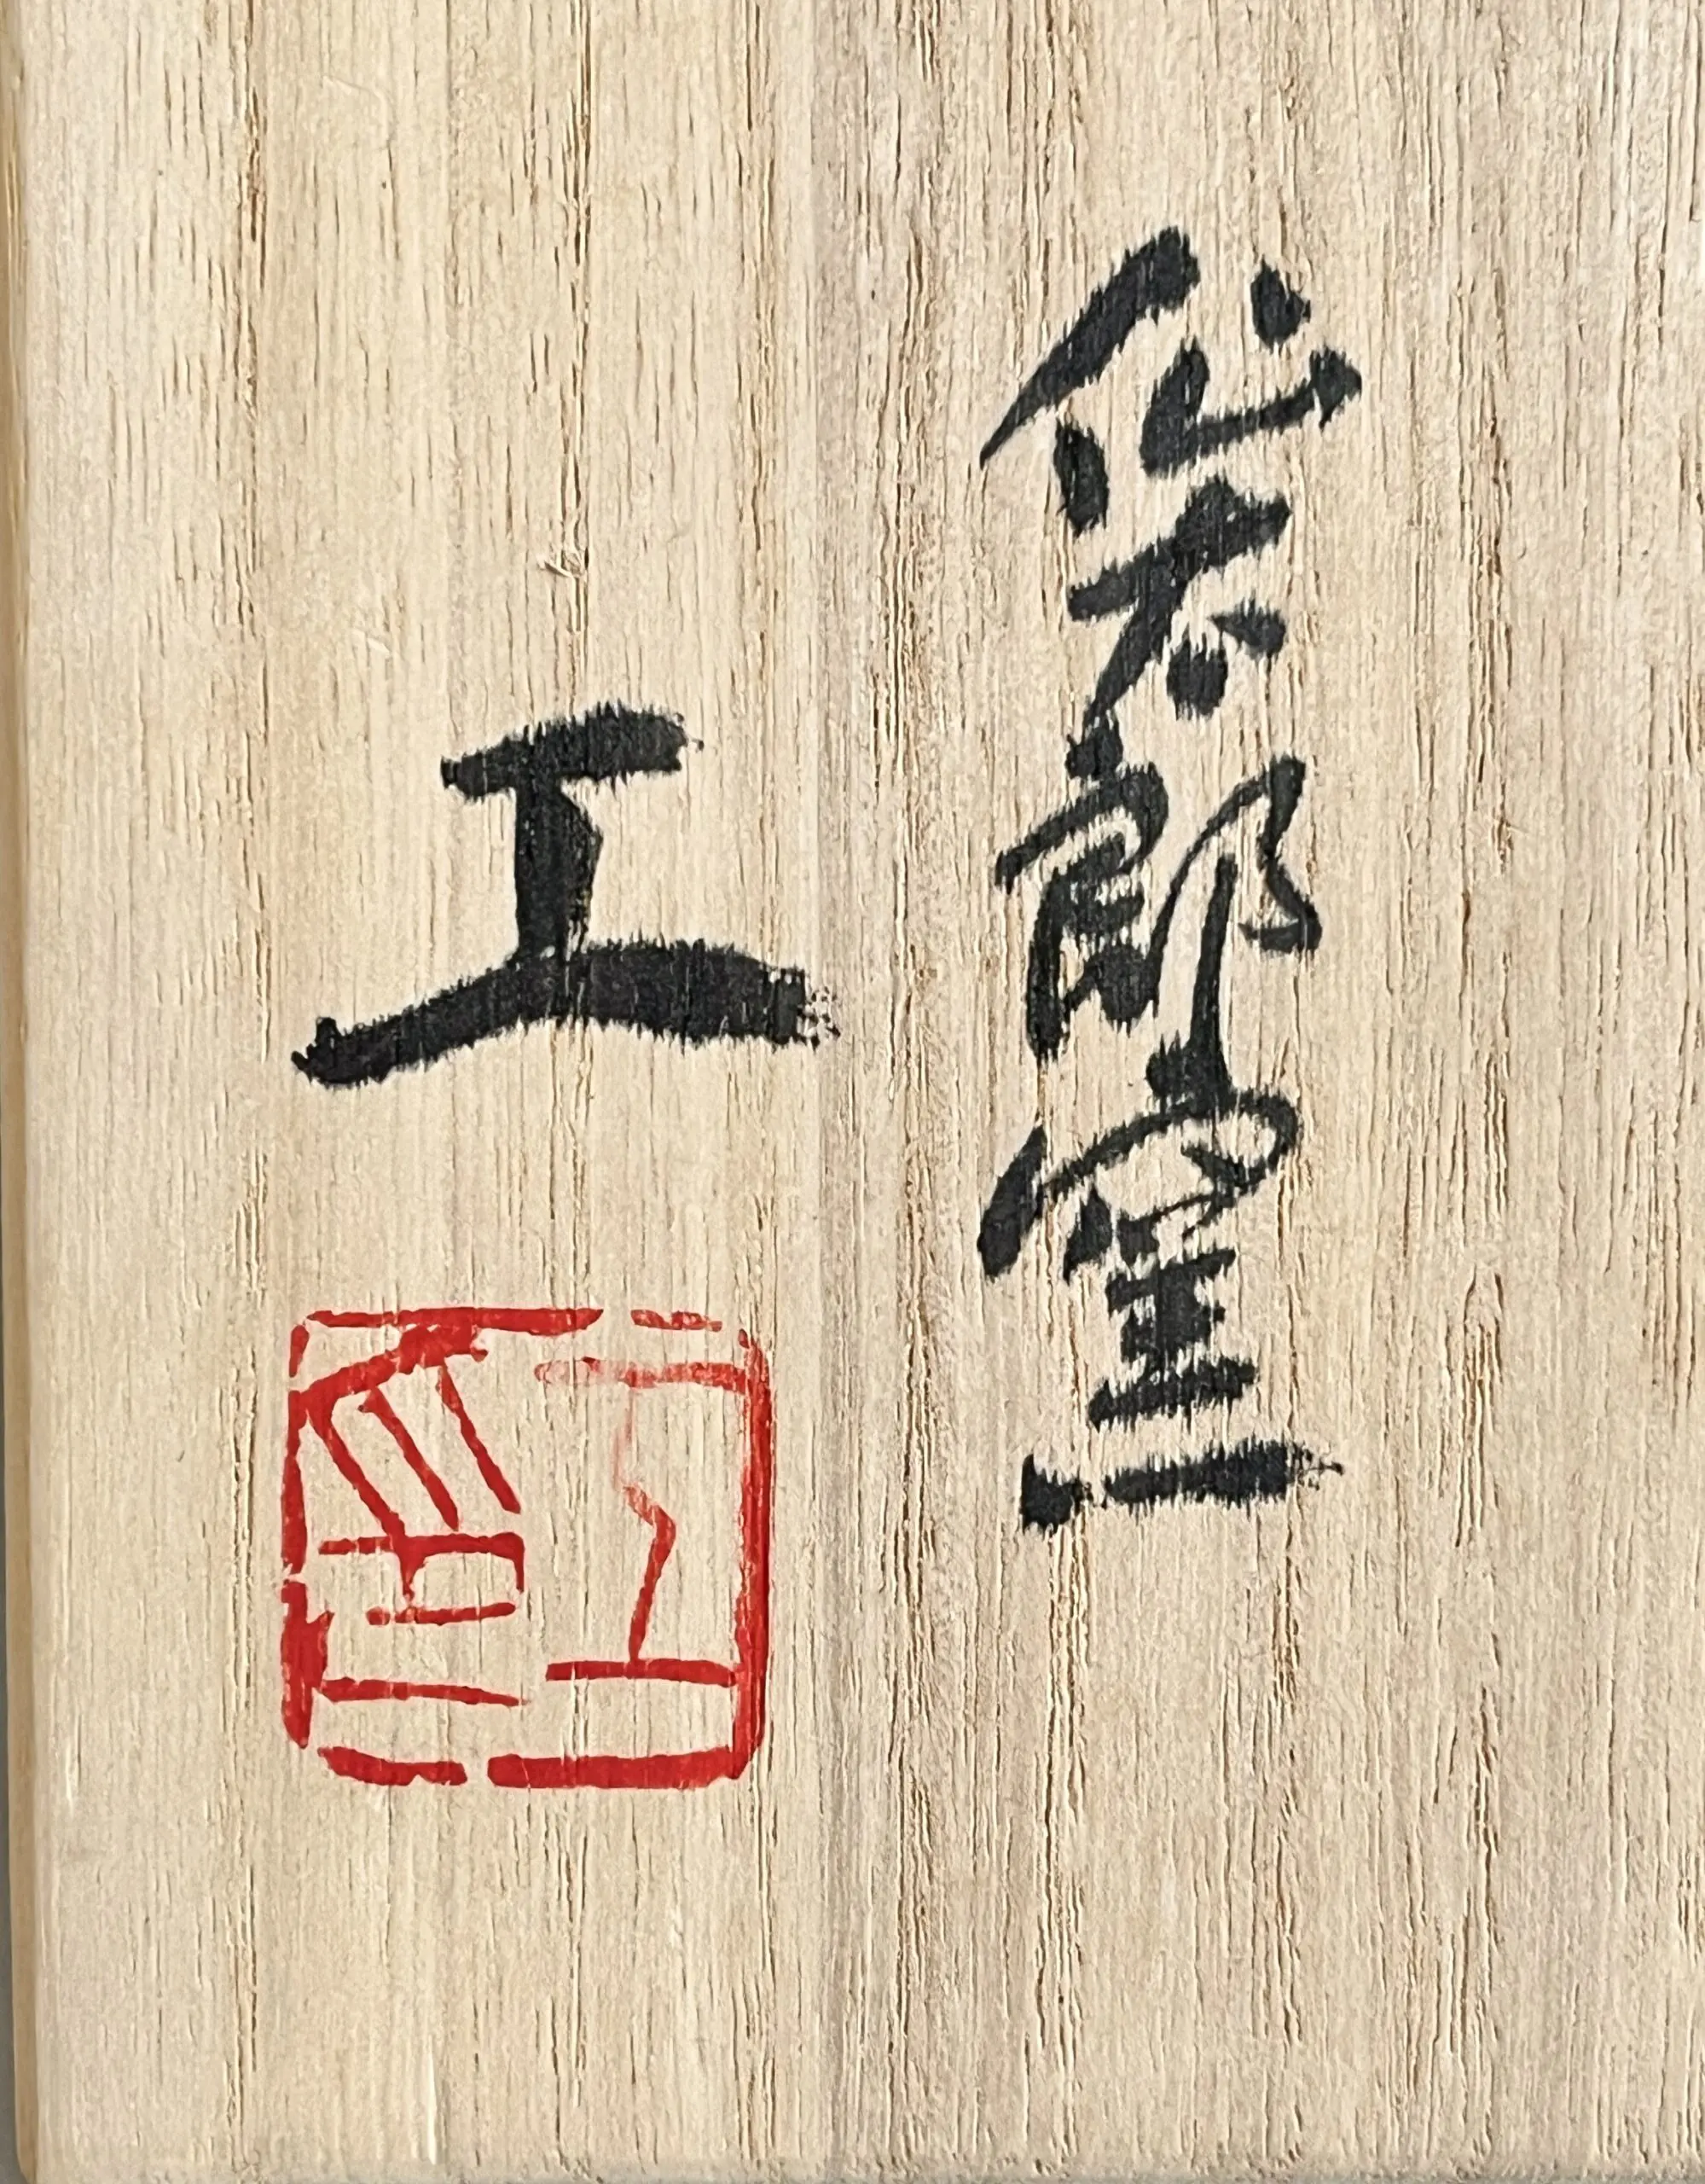 仙太郎窯
工